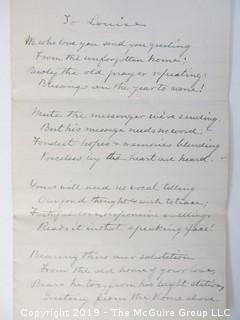 To Louise
We who love you send you greeting
From the unforgotten home!
Only the old prayer repeating:
Blessings on the year to come!
Mute the messenger we're sending,
But his message needs no word:
Fondest hopes & memories blending
Voiceless by the heart are heard.
Yours will need no vocal telling
Our fond thought & wish to trace;
Reads it in that speaking face!
Bearing this our salutation
From the old home of your love,
from his bright
Greeting from the Home above.
COPYRIGHT 2019 - The McGuire Group